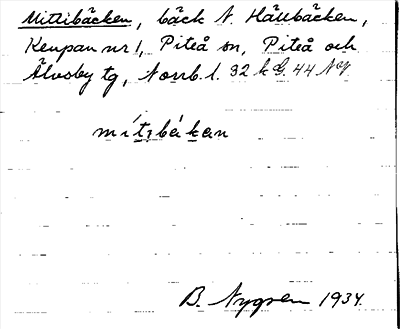 Mittibäcken, bäck N. Hällbäcken,
Keupan nr 1, Piteå sn, Piteå och
Älvsby tg, Norrb. l. 32 k G. 44 NV
mítibákan
B. Nygren 1934.